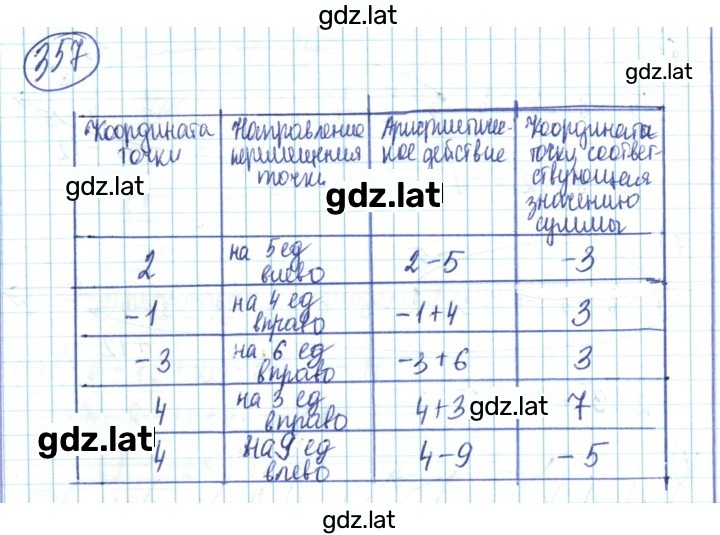 gdz.lat
357
gdz.lat
Координата Направление Арифметичес- Координата
точки перемещения кое действие точки, соответ-
точки ствующая
gdz.lat gdz.lat значению
суммы
2 на 5 ед влево 2-5 -3
-1 на 4 ед вправо -1+4 3
-3 на 6 ед вправо -3+6 3
4 на 3 ед вправо 4+3 gdz.lat 7
gdz.lat
4 на 9 ед влево 4-9 -5
gdz.lat